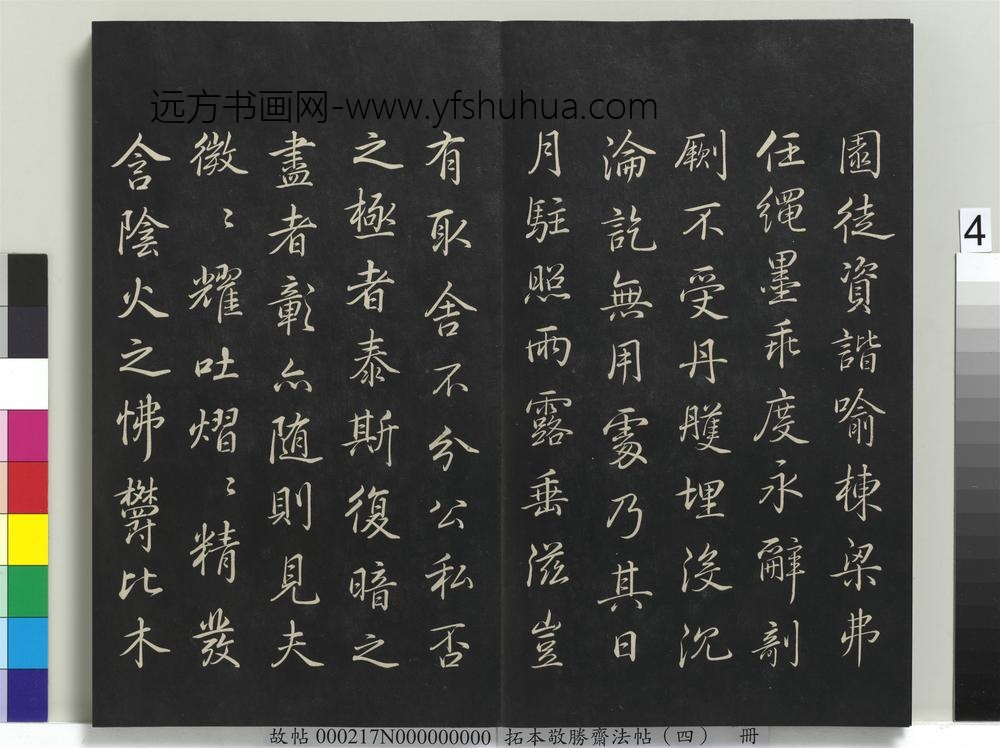 远方书画网-www.yfshuhua.com
園徒資諧喻棟梁弗
任繩墨乖度永辭剞
劂不受丹雘埋没沉
淪訖無用處乃其日
月駐照雨露垂滋豈
有取舍不分公私否
之極者泰斯復暗之
盡者彰亦随則見夫
微〻耀吐熠〻精發
含陰火之怫欝比木
4
故帖 000217N000000000 拓本敬勝齋法帖（四） 冊